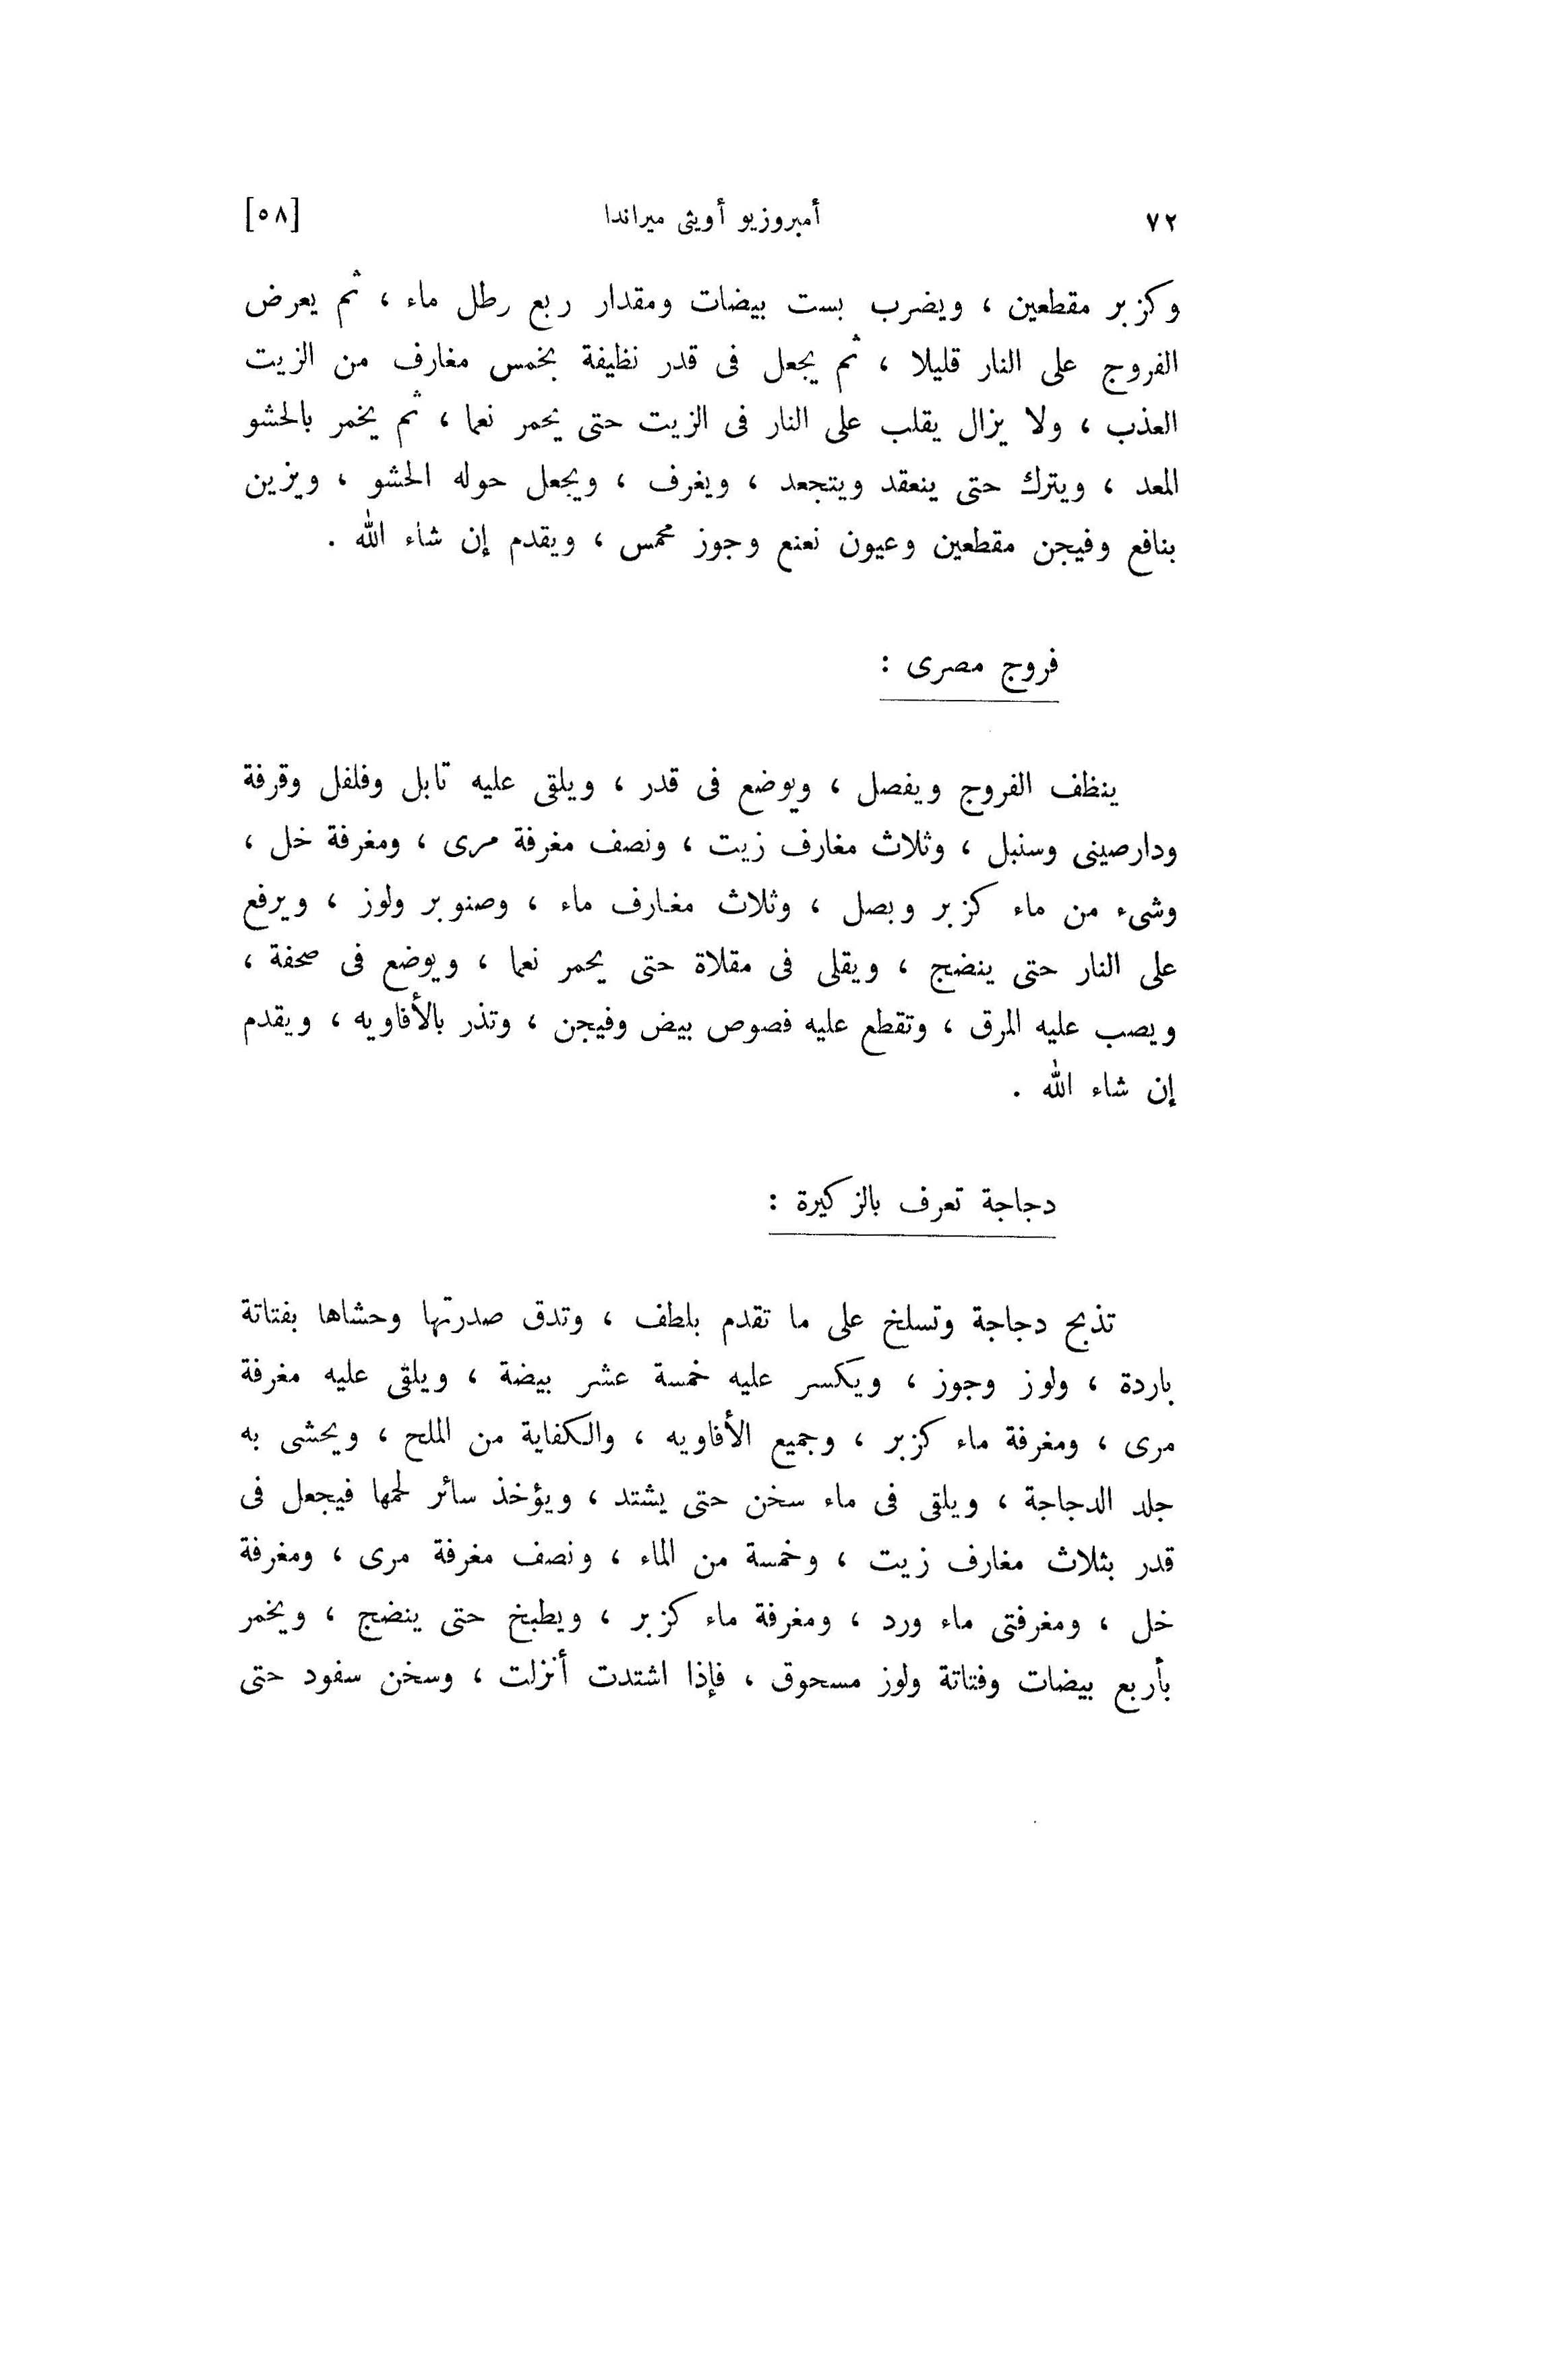 ٧٢ أمبروزيو أويثى ميراندا [٥٨]
وكزبر مقطعين ، ويضرب بست بيضات ومقدار ربع رطل ماء ، ثم يعرض
الفروج على النار قليلا ، ثم يجعل فى قدر نظيفة بخمس مغارف من الزيت
العذب ، ولا يزال يقلب على النار فى الزيت حتى يحمر نعما ، ثم يخمر بالحشو
المعد ، ويترك حتى ينعقد ويتجعد ، ويغرف ، ويجعل حوله الحشو ، ويزين
بنافع وفيجن مقطعين وعيون نعنع وجوز محمس ، ويقدم إن شاء الله .
فروج مصرى :
ينظف الفروج ويفصل ، ويوضع فى قدر ، ويلقى عليه تابل وفلفل وقرفة
ودارصينى وسنبل ، وثلاث مغارف زيت ، ونصف مغرفة مرى ، ومغرفة خل ،
وشىء من ماء كزبر وبصل ، وثلاث مغارف ماء ، وصنوبر ولوز ، ويرفع
على النار حتى ينضج ، ويقلى فى مقلاة حتى يحمر نعما ، ويوضع فى صحفة ،
ويصب عليه المرق ، وتقطع عليه فصوص بيض وفيجن ، وتذر بالأفاويه ، ويقدم
إن شاء الله .
دجاجة تعرف بالزكيرة :
تذبح دجاجة وتسلخ على ما تقدم بلطف ، وتدق صدرتها وحشاها بفتاتة
باردة ، ولوز وجوز ، ويكسر عليه خمسة عشر بيضة ، ويلقى عليه مغرفة
مرى ، ومغرفة ماء كزبر ، وجميع الأفاويه ، والكفاية من الملح ، ويحشى به
جلد الدجاجة ، ويلقى فى ماء سخن حتى يشتد ، ويؤخذ سائر لحمها فيجعل فى
قدر بثلاث مغارف زيت ، وخمسة من الماء ، ونصف مغرفة مرى ، ومغرفة
خل ، ومغرفتى ماء ورد ، ومغرفة ماء كزبر ، ويطبخ حتى ينضج ، ويخمر
بأربع بيضات وفتاتة ولوز مسحوق ، فإذا اشتدت أنزلت ، وسخن سفود حتى